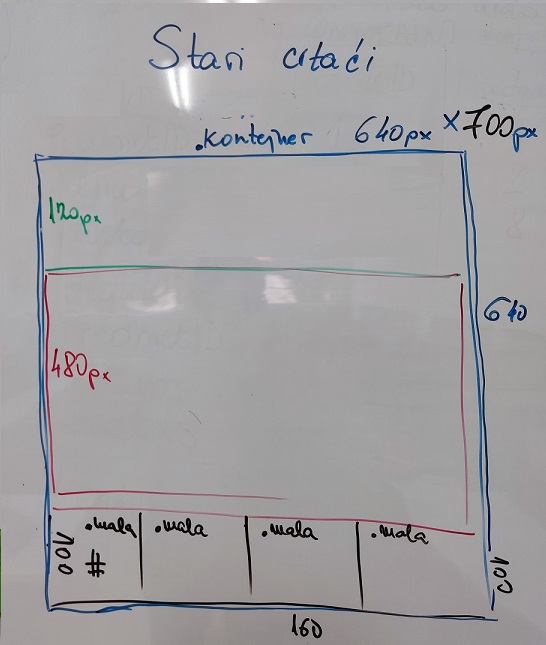 Stari crtaći
.kontejner 640px x 700px
120px
640
480px
.mala .mala .mala .mala
100 #
100
160